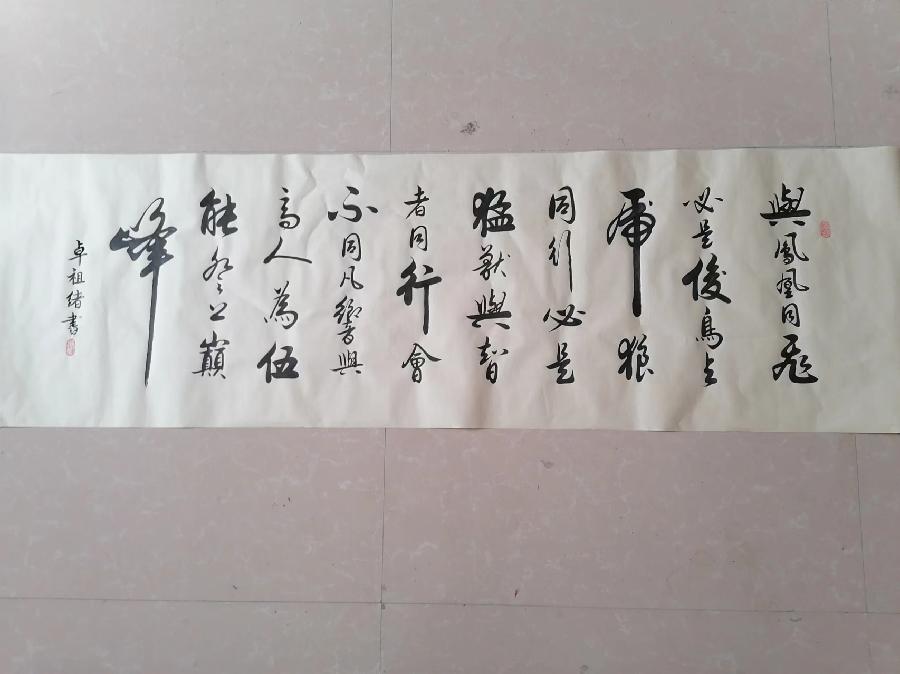 與鳳凰同飛
必是俊鳥與
虎狼
同行必是
猛獸與智
者同行會
不同凡響與
高人為伍
能登上巔
峰
卓祖绪書